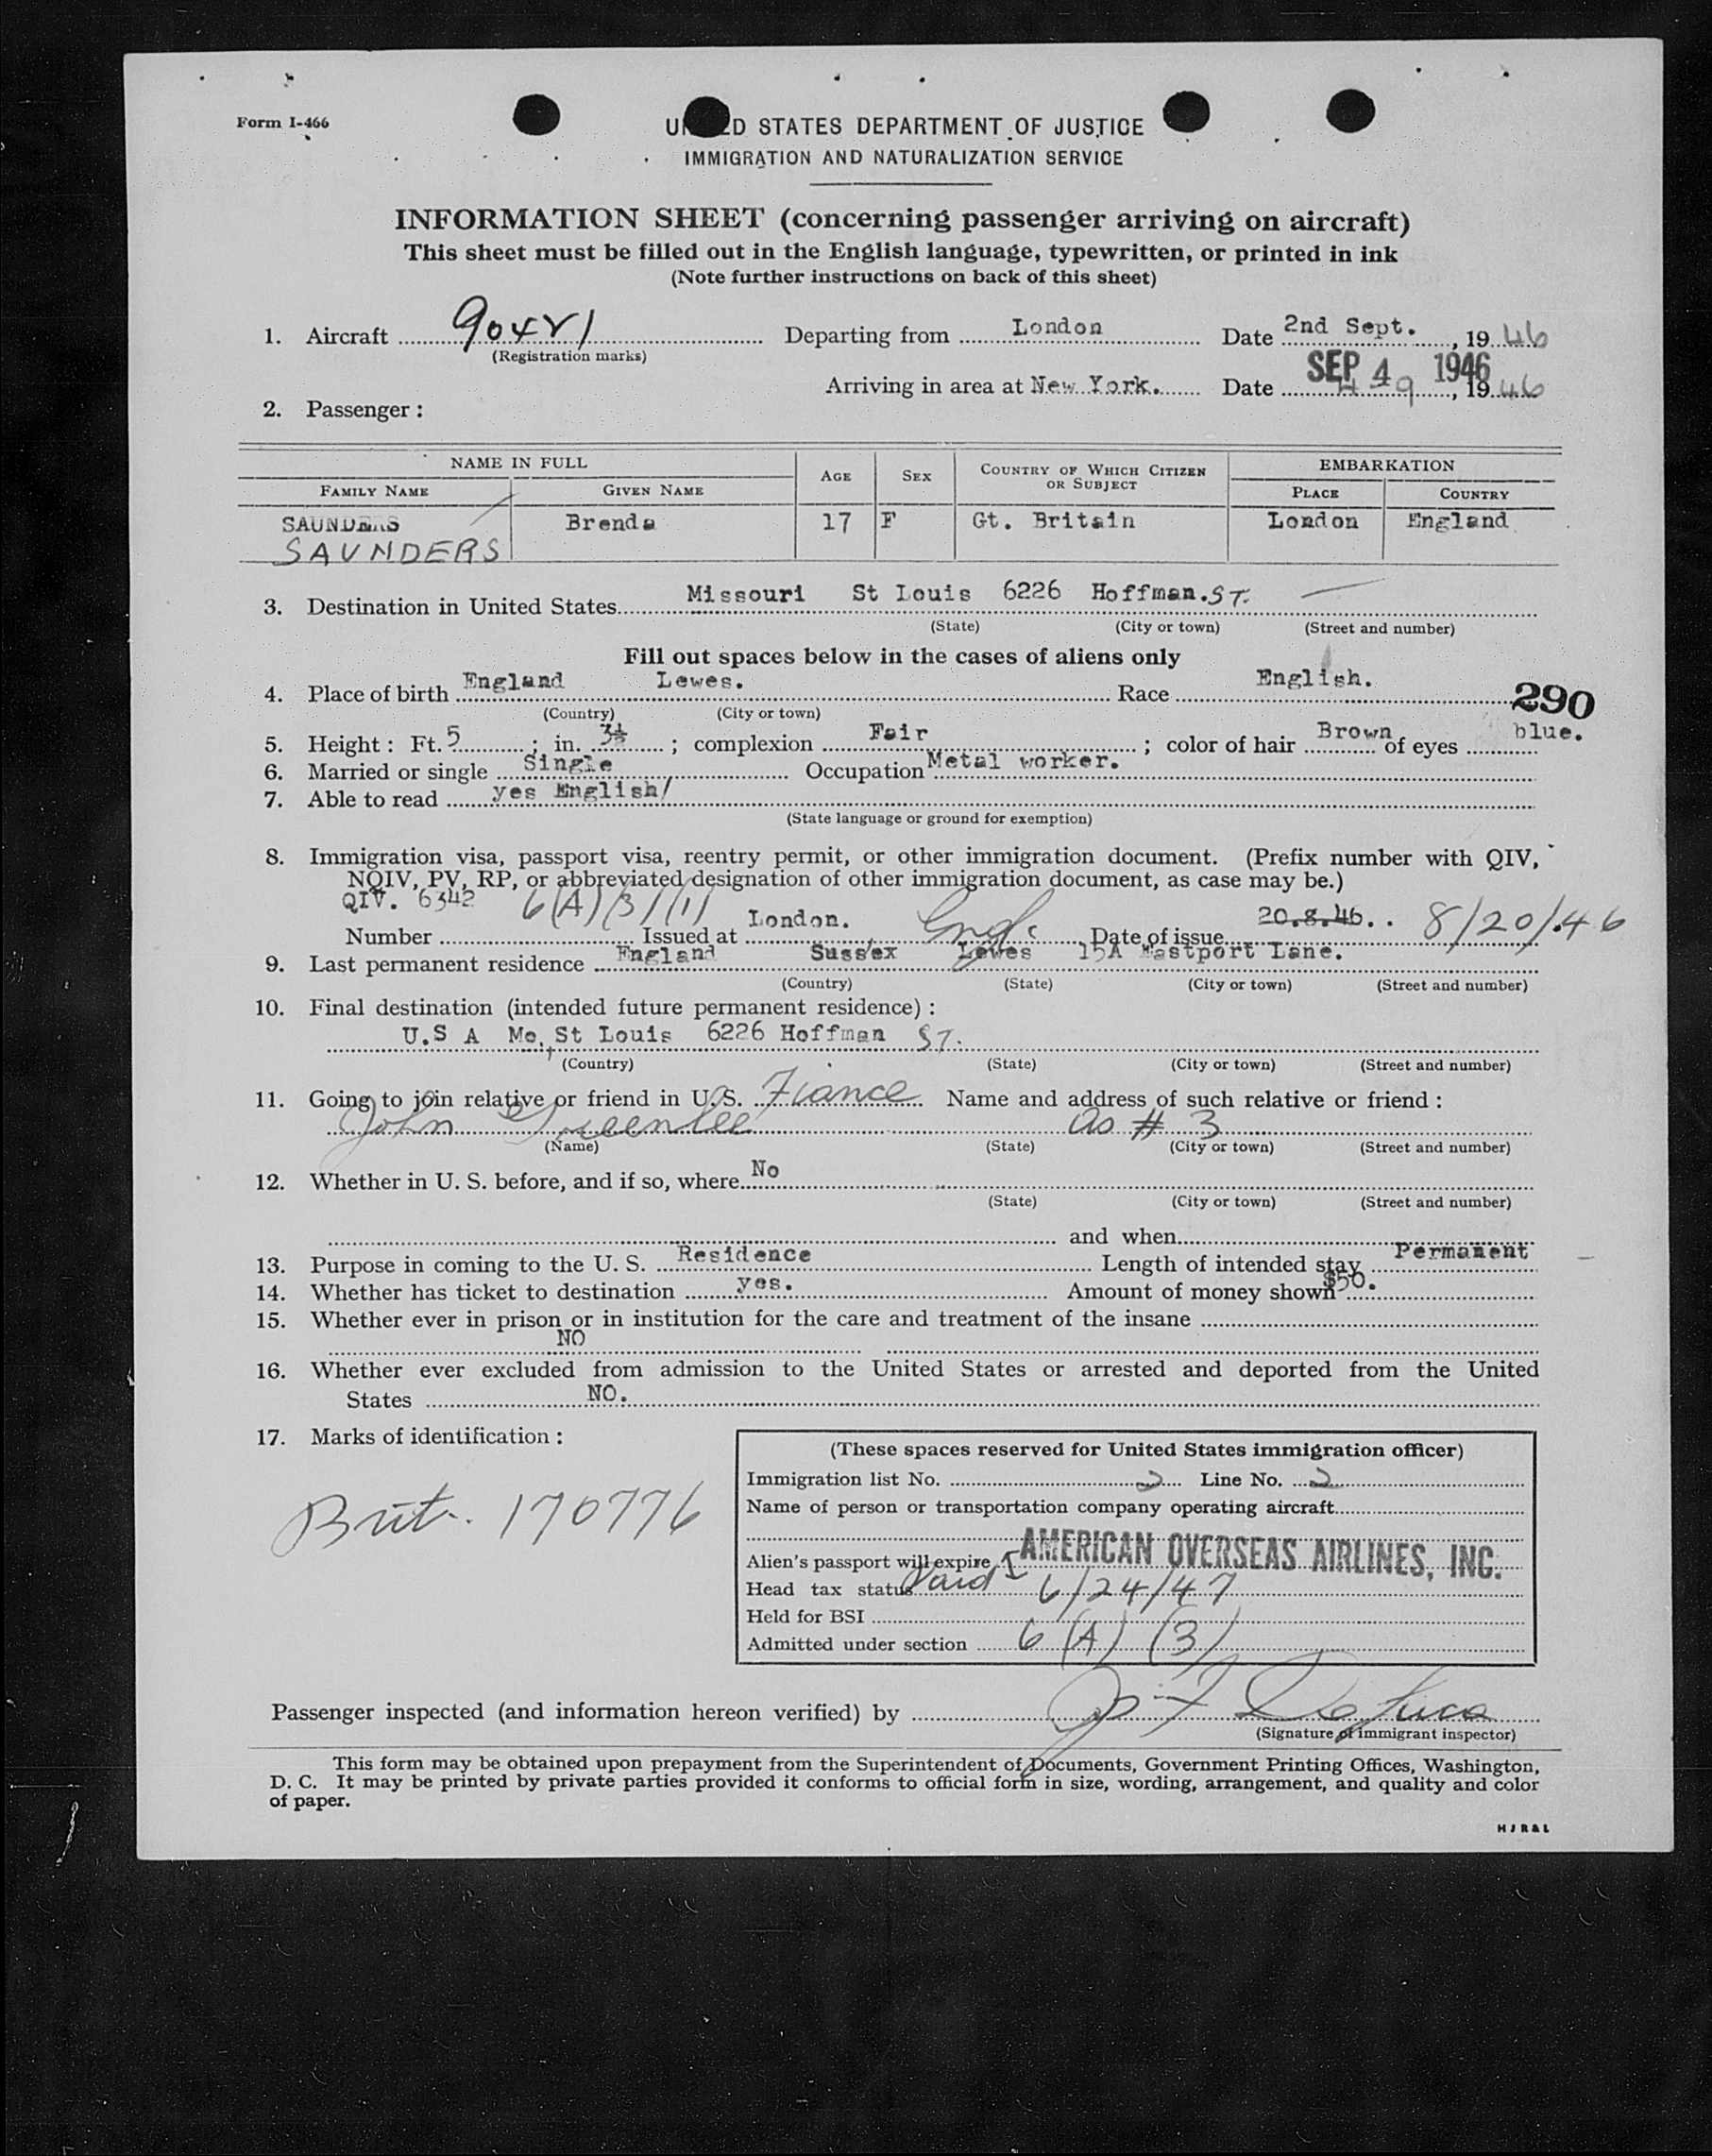 Form I-466
UNITED STATES DEPARTMENT OF JUSTICE
IMMIGRATION AND NATURALIZATION SERVICE
INFORMATION SHEET (concerning passenger arriving on aircraft)
This sheet must be filled out in the English language, typewritten, or printed in ink
(Note further instructions on back of this sheet)
1. Aircraft Departing from London Date 2nd Sept. , 19 46
(Registration marks)
SEP 4 1946
Arriving in area at New York. Date 4 - 9 , 19 46
2. Passenger :
NAME IN FULL AGE SEX COUNTRY OF WHICH CITIZEN OR SUBJECT EMBARKATION
FAMILY NAME GIVEN NAME PLACE COUNTRY
SAUNDERS Brenda 17 F Gt. Britain London England
SAUNDERS
3. Destination in United States Missouri St Louis 6226 Hoffman. ST.
(State) (City or town) (Street and number)
Fill out spaces below in the cases of aliens only
4. Place of birth England Lewes. Race English.
290
(Country) (City or town)
5. Height : Ft. 5 ; in. 3½ ; complexion Fair ; color of hair Brown of eyes blue.
6. Married or single Single Occupation Metal worker.
7. Able to read yes English/
(State language or ground for exemption)
8. Immigration visa, passport visa, reentry permit, or other immigration document. (Prefix number with QIV,
NQIV, PV, RP, or abbreviated designation of other immigration document, as case may be.)
QIV. 6342 6(A)(3)(1)
Number Issued at London. Engl. Date of issue 20.8.46.. 8/20/46
9. Last permanent residence England Sussex Lewes 15A Eastport Lane.
(Country) (State) (City or town) (Street and number)
10. Final destination (intended future permanent residence) :
U.S A Mo, St Louis 6226 Hoffman ST.
(Country) (State) (City or town) (Street and number)
11. Going to join relative or friend in U. S. Fiance Name and address of such relative or friend :
John Greenlee as # 3
(Name) (State) (City or town) (Street and number)
12. Whether in U. S. before, and if so, where No
(State) (City or town) (Street and number)
and when
13. Purpose in coming to the U. S. Residence Length of intended stay Permanent
14. Whether has ticket to destination yes. Amount of money shown $50.
15. Whether ever in prison or in institution for the care and treatment of the insane
NO
16. Whether ever excluded from admission to the United States or arrested and deported from the United
States NO.
17. Marks of identification :
Brit. 170776
(These spaces reserved for United States immigration officer)
Immigration list No. 2 Line No. 2
Name of person or transportation company operating aircraft
AMERICAN OVERSEAS AIRLINES, INC.
Alien's passport will expire
Head tax status Paid 6/24/47
Held for BSI
Admitted under section 6 (A) (3)
Passenger inspected (and information hereon verified) by
(Signature of immigrant inspector)
This form may be obtained upon prepayment from the Superintendent of Documents, Government Printing Offices, Washington,
D. C. It may be printed by private parties provided it conforms to official form in size, wording, arrangement, and quality and color
of paper.
HJR&L